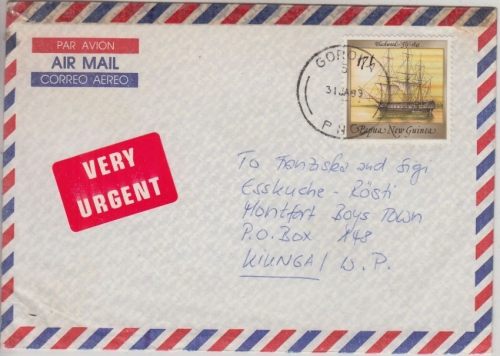 PAR AVION
AIR MAIL
CORREO AEREO
GORDO
31 JA 93
P N G
17t
Papua New Guinea
VERY
URGENT
To Franziska and Sigi
Esskuche - Rösti
Montfort Boys Town
P.O. Box 148
KIUNGA / W.P.